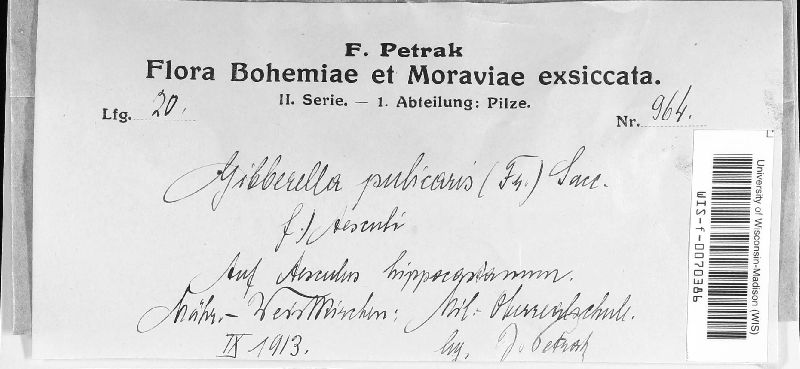 F. Petrak
Flora Bohemiae et Moraviae exsiccata.
II. Serie. — 1. Abteilung: Pilze.
Lfg. 20.
Nr. 964.
Gibberella pulicaris (Fr.) Sacc.
f.) Aesculi
Auf Aesculus hippocastanum.
Mähr.- Weisskirchen: Mil.- Oberrealschule.
IX 1913.
lg. J. Petrak
University of Wisconsin-Madison (WIS)
WIS-f-0070386